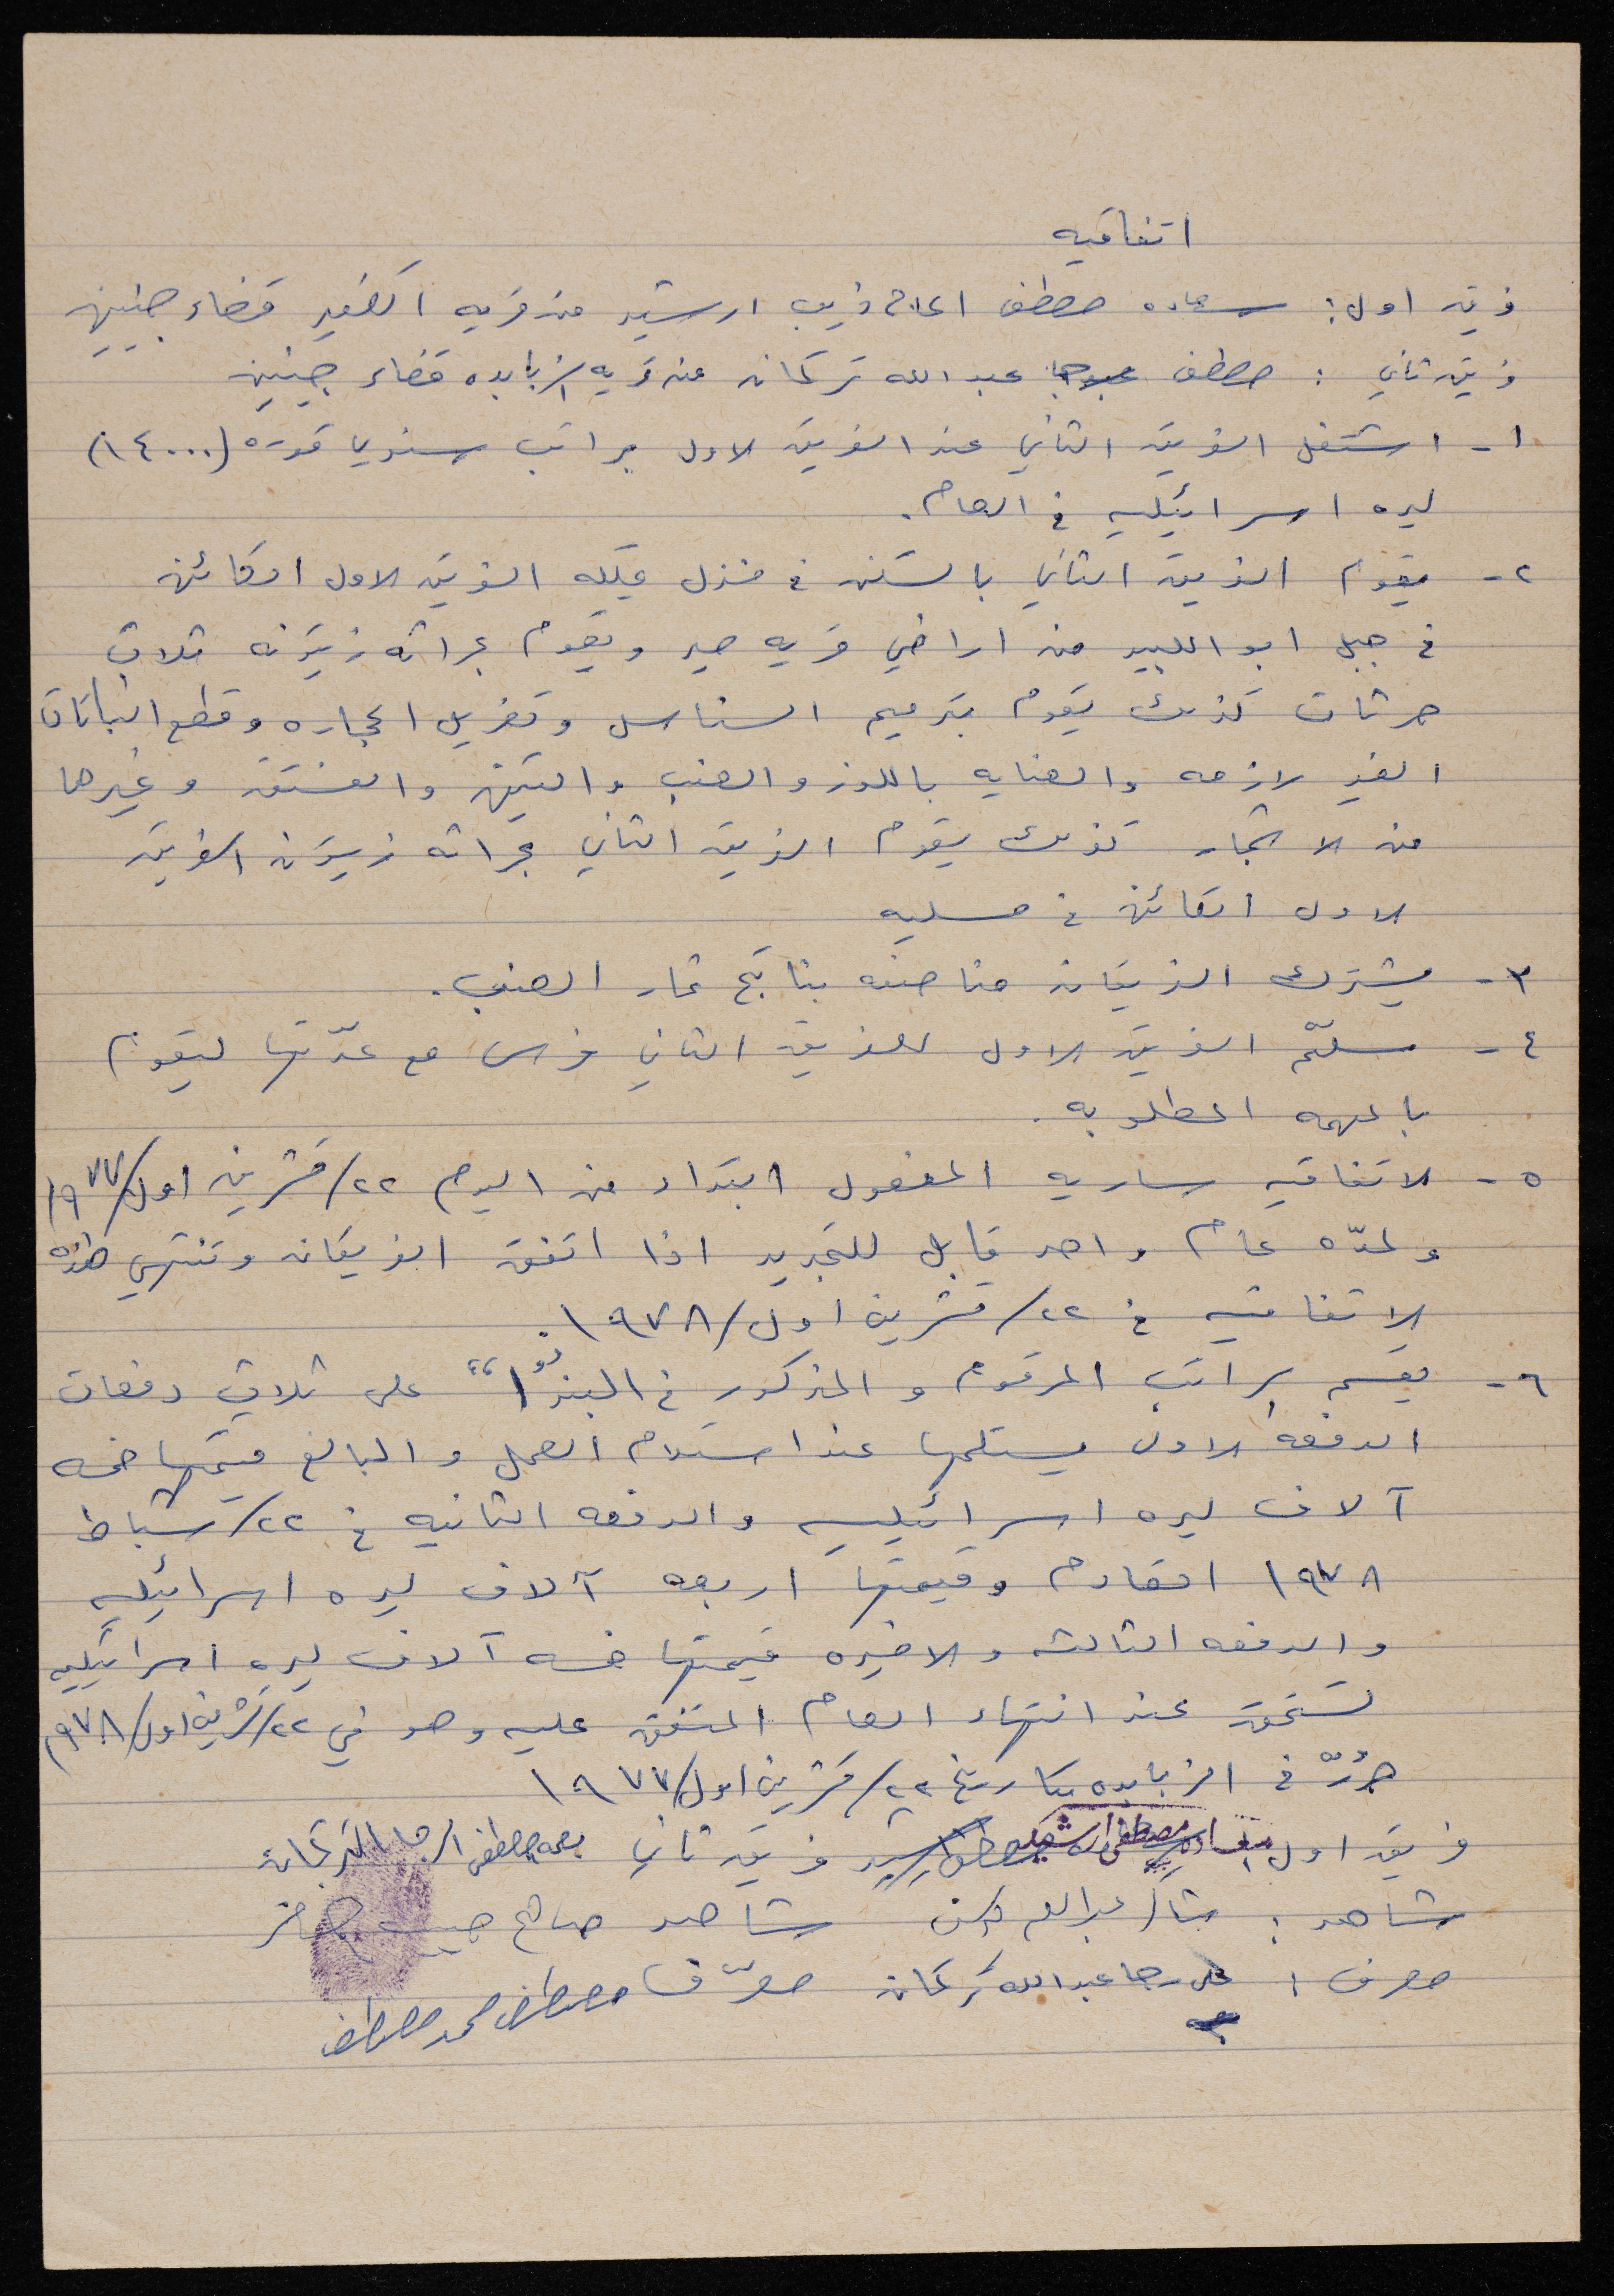 اتفاقيه
فريق اول: سعاده مصطفى الحاج ذيب ارشيد من قريه الكفير قضاء جنين
فريق ثاني: مصطفى عبد الله تركمان من قريه الزبابده قضاء جنين
١- اشتغل الفريق الثاني عند الفريق الاول براتب سنوي قدره (١٤٠٠٠)
ليره اسرائيليه في العام.
٢- يقوم الفريق الثاني بالسكن في منزل يملكه الفريق الاول الكائن
في جبل ابو اللبيد من اراضي قريه صير ويقوم بحراثه زيتونه ثلاث
حرثات كذلك يقوم بترميم السناسل وتعزيل الحجاره وقطع النباتات
الغير لازمه والعنايه باللوز والعنب والتين والفستق وغيرها
من الاشجار كذلك يقوم الفريق الثاني بحراثه زيتون الفريق
الاول الكائن في مسليه
٣- يشترك الفريقان مناصفه بناتج ثمار العنب.
٤- سلّم الفريق الاول للفريق الثاني فرس مع عدّتها ليقوم
بالمهمه المطلوبه.
٥- الاتفاقيه ساريه المفعول ابتداء من اليوم ٢٢/تشرين اول/١٩٧٧
ولمدّه عام واحد قابل للتجديد اذا اتفق الفريقان وتنتهي هذه
الاتفاقيه في ٢٢/تشرين اول/١٩٧٨.
٦- يقسم براتب المرقوم والمذكور في البند "١" على ثلاث دفعات
الدفعه الاولى يستلمها عند استلام العمل والبالغ قيمتها خمسه
آلاف ليره اسرائيليه والدفعه الثانيه في ٢٢/شباط
١٩٧٨ القادم وقيمتها اربعه آلاف ليره اسرائيليه
والدفعه الثالثه والاخيره قيمتها خمسه آلاف ليره اسرائيليه
تستحق عند انتهاء العام المتفق عليه وهو في ٢٢/تشرين اول/١٩٧٨
حُرّر في الزبابده بتاريخ ٢٢/تشرين اول/١٩٧٧
فريق اول سعاده مصطفى ارشيد فريق ثاني بصمه مصطفى الرجا التركمان
شاهد: عبدالله شاهد صالح حبيب
معرف: علي رجا عبدالله تركمان معرّف مصطفى محمد مصطفى